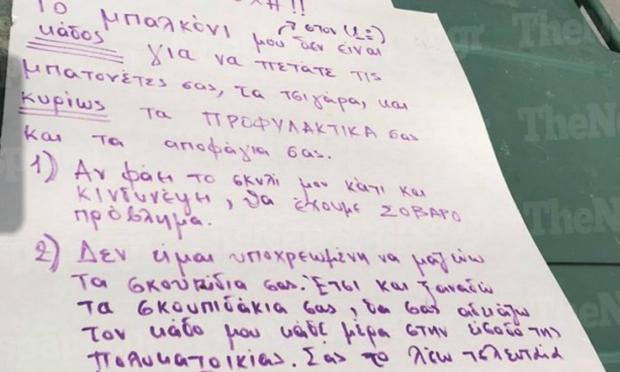 !!
Το μπαλκόνι μου δεν είναι
→ στον (1ο)
κάδος για να πετάτε τις
μπατονέτες σας, τα τσιγάρα, και
κυρίως τα ΠΡΟΦΥΛΑΚΤΙΚΑ σας
και τα αποφάγια σας.
1) Αν φάει το σκυλί μου κάτι και
κινδυνέψει, θα έχουμε ΣΟΒΑΡΟ
πρόβλημα.
2) Δεν είμαι υποχρεωμένη να μαζεύω
τα σκουπίδια σας. Έτσι και ξαναδώ
τα σκουπιδάκια σας, θα σας αδειάζω
τον κάδο μου κάθε μέρα στην είσοδο της
πολυκατοικίας. Σας το λέω τελευταία
TheN